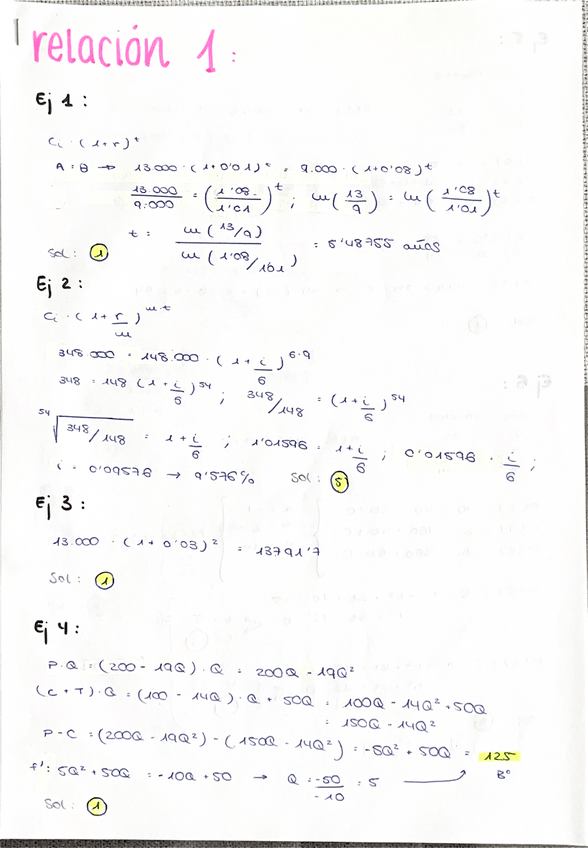 relación 1:
Ej 1:
Ci · (1+r)^t
A = B → 13.000 · (1+0'01)^t = 9.000 · (1+0'08)^t
13.000/9.000 = (1'08/1'01)^t ; ln(13/9) = ln(1'08/1'01)^t
t = ln(13/9) / ln(1'08/1'01) = 5'48755 años
Sol: 1
Ej 2:
Ci · (1 + r/m)^mt
348.000 = 148.000 · (1 + i/6)^6·9
348 = 148 (1 + i/6)^54 ; 348/148 = (1 + i/6)^54
54√348/148 = 1 + i/6 ; 1'01596 = 1 + i/6 ; 0'01596 = i/6 ;
i = 0'09576 → 9'576% Sol: 5
Ej 3:
13.000 · (1 + 0'03)² = 13791'7
Sol: 1
Ej 4:
P·Q = (200 - 19Q) · Q = 200Q - 19Q²
(C+T)·Q = (100 - 14Q) · Q + 50Q = 100Q - 14Q² + 50Q
= 150Q - 14Q²
P - C = (200Q - 19Q²) - (150Q - 14Q²) = -5Q² + 50Q = 125
f': 5Q² + 50Q = -10Q + 50 → Q = -50/-10 = 5 → Bº
Sol: 1